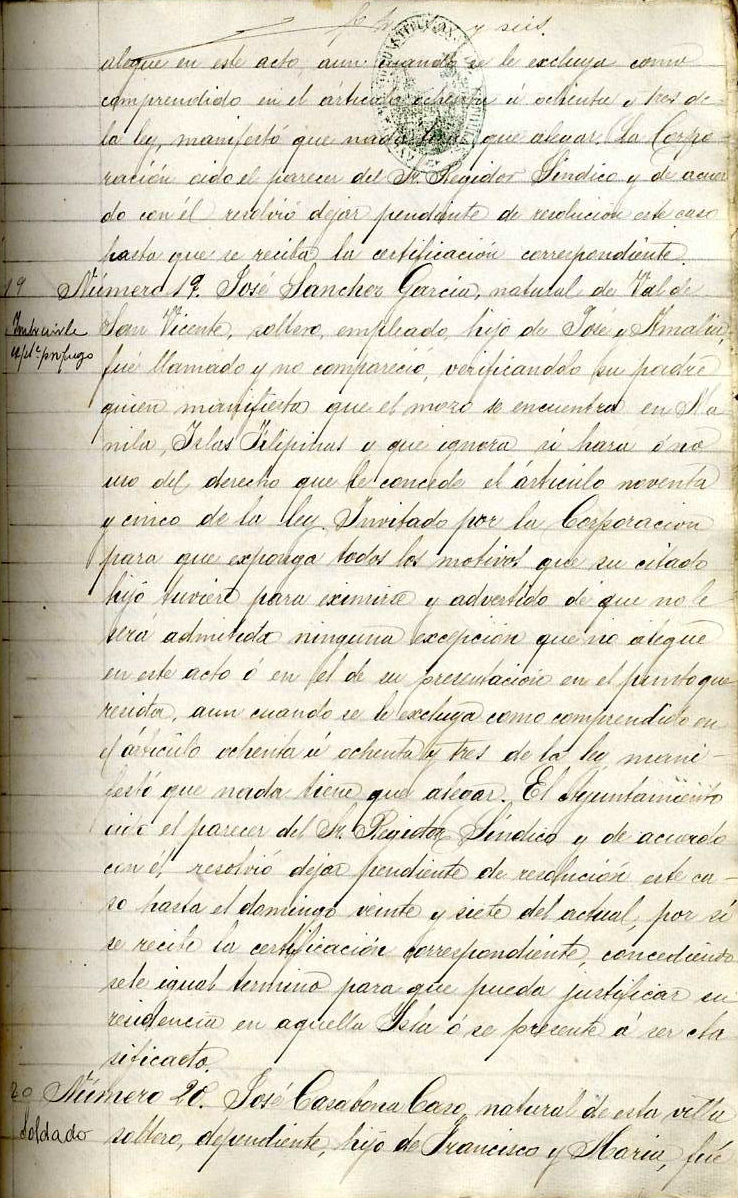 y seis.
alegue en este acto, aun cuando se le excluya como
comprendido en el árticulo ochenta ú ochenta y tres de
la ley, manifestó que nada tiene que alegar. La Corpo-
ración oido el parecer del Sr. Regidor Síndico y de acuer
do con él resolvió dejar pendiente de resolución este caso
hasta que se reciba la certificación correspondiente.
19 Número 19. José Sanchez Garcia, natural de Val de
San Vicente, soltero, empleado, hijo de José y Amalia,
prófugo
fué llamado y no compareció, verificandolo su padre
quien manifiesta que el mozo se encuentra en Ma
nila, Islas Filipinas y que ignora si hara ó no
uso del derecho que le concede el árticulo noventa
y cinco de la ley. Invitado por la Corporacion
para que exponga todos los motivos que su citado
hijo tuviere para eximirse y advertido de que no le
será admitida ninguna excepción que no alegue
en este acto ó en el de su presentación en el punto que
resida, aun cuando se le excluya como comprendido en
el árticulo ochenta ú ochenta y tres de la ley mani-
festó que nada tiene que alegar. El Ayuntamiento
oido el parecer del Sr. Regidor Síndico y de acuerdo
con él, resolvió dejar pendiente de resolución este ca-
so hasta el domingo veinte y siete del actual, por si
se recibe la certificación correspondiente, concediendo
sele igual termino para que pueda justificar su
residencia en aquella Isla ó se presente á ser cla
sificado.
20 Número 20. José Casabona Caso, natural de esta villa
Soldado
soltero, dependiente, hijo de Francisco y Maria, fué